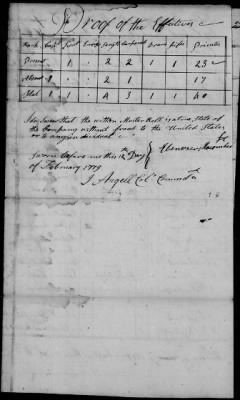 Proof of the Effectives
Rank Capt Lieut Ensign Sergts Corporals Drum Fife Privates
Present 1 1 . 2 2 1 1 23
Absent . . . 2 1 . . 17
Total 1 1 . 4 3 1 1 40
I do Swear that the within Muster Roll is a true State of
the Company without fraud to the United States
or to any individual
Sworn before me this 12th Day
of February 1779
Ebenezer
I. Angell Colo Commdt